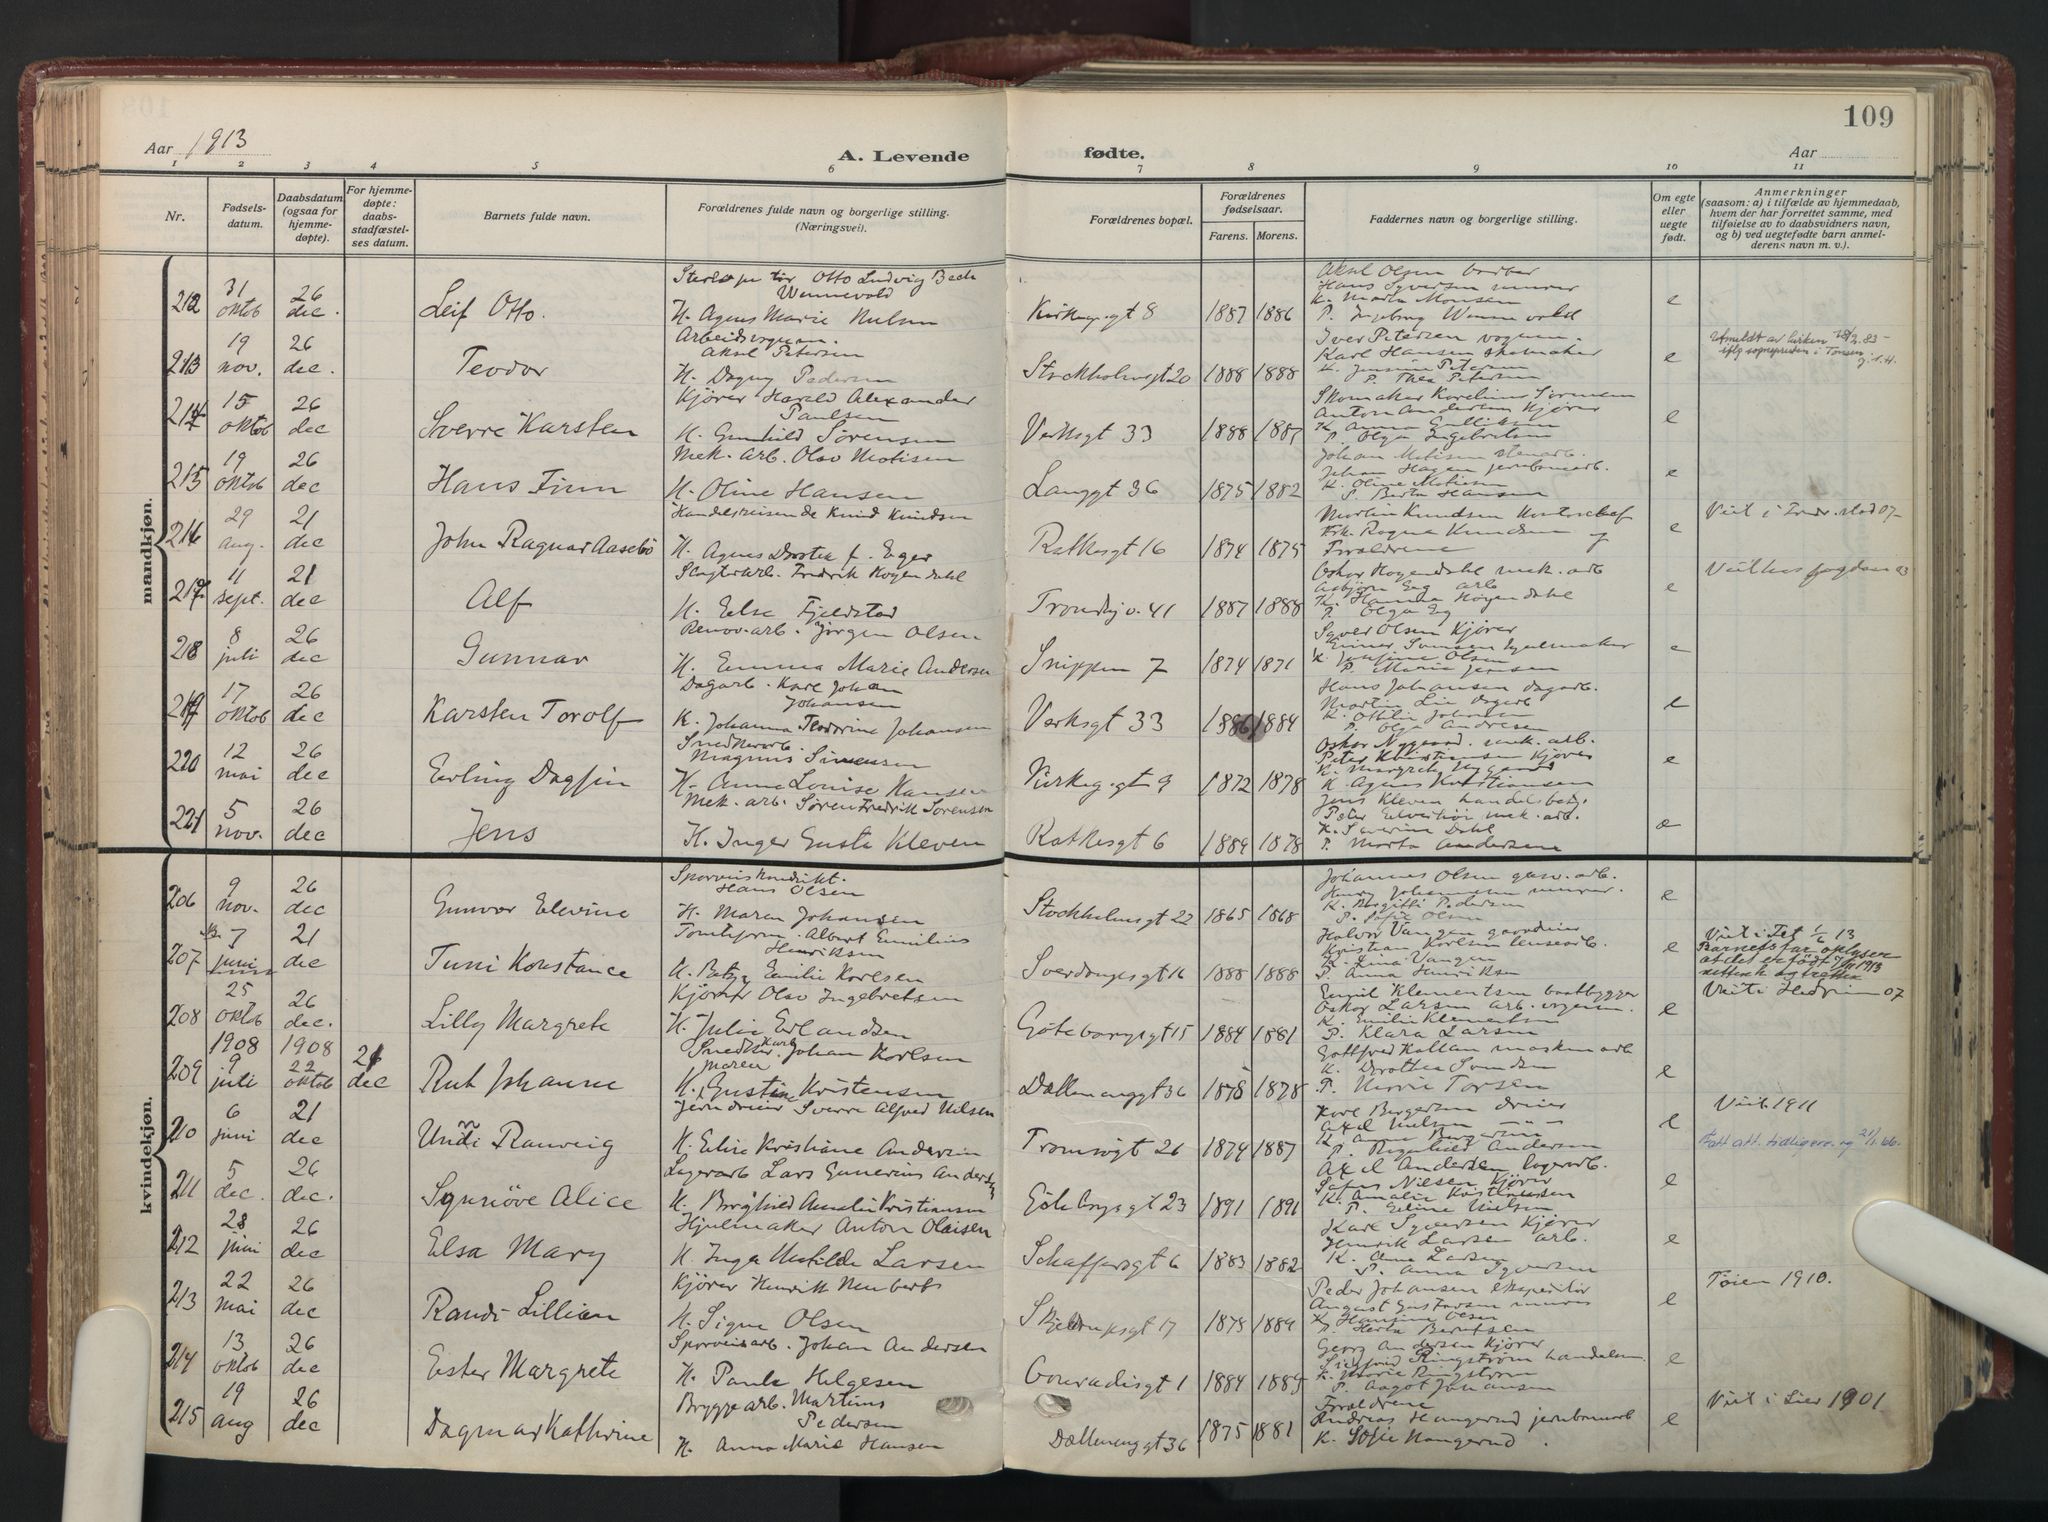 109
Aar 1913
A. Levende fødte.
Aar
1 2 3 4 5 6 7 8 9 10 11
Nr.
Fødsels-
datum.
Daabsdatum
(ogsaa for
hjemme-
døpte).
For hjemme-
døpte:
daabs-
stadfæstel-
ses datum.
Barnets fulde navn.
Forældrenes fulde navn og borgerlige stilling.
(Næringsvei).
Forældrenes bopæl.
Forældrenes
fødselsaar.
Farens. Morens.
Faddernes navn og borgerlige stilling.
Om egte
eller
uegte
født.
Anmerkninger
(saasom: a) i tilfælde av hjemmedaab,
hvem der har forrettet samme, med
tilføielse av to daabsvidners navn,
og b) ved uegtefødte barn anmel-
derens navn m. v.).
mandkjøn.
212 31 oktob 26 dec. Leif Otto.
Otto Ludvig Bech
Wennevold
H. Agnes Marie Nilsen
Kirkegt 8 1887 1886
Aksel Olsen barber
Hans Syversen murer
K. Marta Monsen
P. Ingeborg Wennevold
e
213 19 nov. 26 dec. Teodor
Arbeidsvognm.
Aksel Petersen
H. Dagny Pedersen
Stockholmsgt 20 1888 1888
Iver Petersen vognm.
Karl Hansen skomaker
K. Petersen
P. Thea Petersen
e
214 15 oktob 26 dec Sverre Karsten
Kjører Harald Alexander
Paulsen
H. Gunhild Sørensen
Verksgt 33 1888 1887
Skomaker Karelius Sørensen
Anton Andersen kjører
K. Anna Gulliksen
P. Olga Ingebretsen
e
215 19 oktob 26 dec Hans Finn
Mek. arb. Olav Matisen
H. Oline Hansen
Langgt 36 1875 1882
Johan Matisen stenarb.
Johan Hagen jernbanearb.
K. Oline Matisen
P. Berta Hansen
e
216 29 aug. 21 dec John Ragnar Aasebø
Handelsreisende Knud Knudsen
H. Agnes Dortea f. Eger
Ratkesgt 16 1874 1875
Martin Knudsen kontorchef
Frk. Ragna Knudsen og
Forældrene
e
217 11 sept. 21 dec Alf
Slagterarb. Fredrik Høgendahl
H. Else Fjeldstad
Trondhj.v. 41 1887 1888
Oskar Høgendahl mek. arb
Asbjørn Eng arb
K. Hanna Høgendahl
P. Olga Eng
e
218 8 juli 26 dec Gunnar
Renov.arb. Jørgen Olsen
H. Emma Marie Andersen
Snippen 7 1874 1871
Syver Olsen kjører
Einar Svensen hjulmaker
K. Josefine Olsen
P. Marie Jensen
e
219 17 oktob 26 dec Karsten Torolf
Dagarb. Karl Johan
Johansen
K. Johanna Teodorine Johansen
Verksgt 33 1886 1884
Hans Johansen dagarb.
Martin Lie dagarb
K. Otilie Johansen
P. Olga Andresen
e
220 12 mai 26 dec Erling Dagfin
Snedkerarb.
Magnus Simensen
H. Anna Louise Hansen
Kirkeg.gt 9 1872 1878
Oskar Nygaard. mek. arb.
Peter Kristiansen kjører
K. Margrete Nygaard
K. Agnes Kristiansen
e
221 5 nov. 26 dec Jens
Mek. arb. Søren Fredrik Sørensen
H. Inger Gusta Kleven
Ratkesgt 6 1889 1878
Jens Kleven handelsbetj.
Peder Elverhøi mek. arb.
K. Severine Dahl
P. Marta Andersen
e
kvindekjøn.
206 9 nov. 26 dec Gunvor Elevine
Sporveiskondukt.
Hans Olsen
H. Maren Johansen
Stockholmsgt 22 1865 1868
Johannes Olsen gasv. arb.
Henry Johannesen murer.
K. Birgitte Pedersen
P. Sofie Olsen
e
207 7 juni 21 dec Tuni Konstance
Tomteform. Albert Emilius
Henriksen
K. Betzy Emilie Karlsen
Sverdrupsgt 16 1888 1888
Halvor Vangen gaardeier
Kristian Karlsen lensearb.
K. Lina Vangen
P. Anna Henriksen
e
Barnets far oplyser
at det er født 7/11 1913
208 25 oktob 26 dec. Lilly Margrete
Kjører Olav Ingebretsen
H. Julie Erlandsen
Göteborgsgt 15 1884 1881
Emil Klementsen baatbygger
Oskar Larsen arb. vognm.
K. Emilie Klementsen
P. Klara Larsen
e
209 1908 9 juli 1908 22 oktob 21 dec Rut Johanne
Snedker Karl Johan Karlsen
H. Maren Gustine Kristensen
Dælenenggt 36 1878 1878
Gottfred Kaltan maskinarb
K. Dorothea Svendsen
P. Marie Torsen
e
210 6 juni 21 dec Unni Ranveig
Jerndreier Sverre Alfred Nilsen
H. Elise Kristiane Andersen
Tromsøgt 26 1874 1887
Karl Birgersen dreier
Axel Nielsen — " —
P. Ragnhild Andersen
e
211 5 dec. 26 dec. Synnöve Alice
Lagerarb Lars Gunerius Andersen
H. Borghild Amalie Kristiansen
Göteborgsgt 23 1891 1891
Axel Andersen lagerarb.
Sofus Nilsen kjører
K. Amalie Kristiansen
P. Eline Nielsen
e
212 28 juni 26 dec Elsa Mary
Hjulmaker Anton Olaisen
H. Inga Matilde Larsen
Schaffersgt 6 1883 1882
Karl Syversen kjører
Henrik Larsen arb.
K. Anna Larsen
P. Anna Syversen
e
213 22 mai 26 dec Randi Lillian
Kjører Henrik Neuberth
H. Signe Olsen
Skjeldrupsgt 17 1875 1889
Peder Johansen ekspeditør
August Gustavsen murer
K. Hansine Olsen
P. Herta Berntsen
e
Tøien 1910.
214 13 oktob 26 dec Ester Margrete
Sporveisarb. Johan Andersen
H. Paula Helgesen
Conradisgt 1 1884 1889
Georg Andersen kjører
Sigfred Ringstrøm handelsm.
K. Marie Ringstrøm
P. Aagot Johansen
e
215 19 aug 26 dec Dagmar Kathrine
Bryggearb. Martins
Pedersen
H. Anna Marie Hansen
Dællenenggt 36 1875 1881
Forældrene
Andreas Haugerud jernbanearb
K. Sofie Haugerud.
e
Viet i Lier 1901